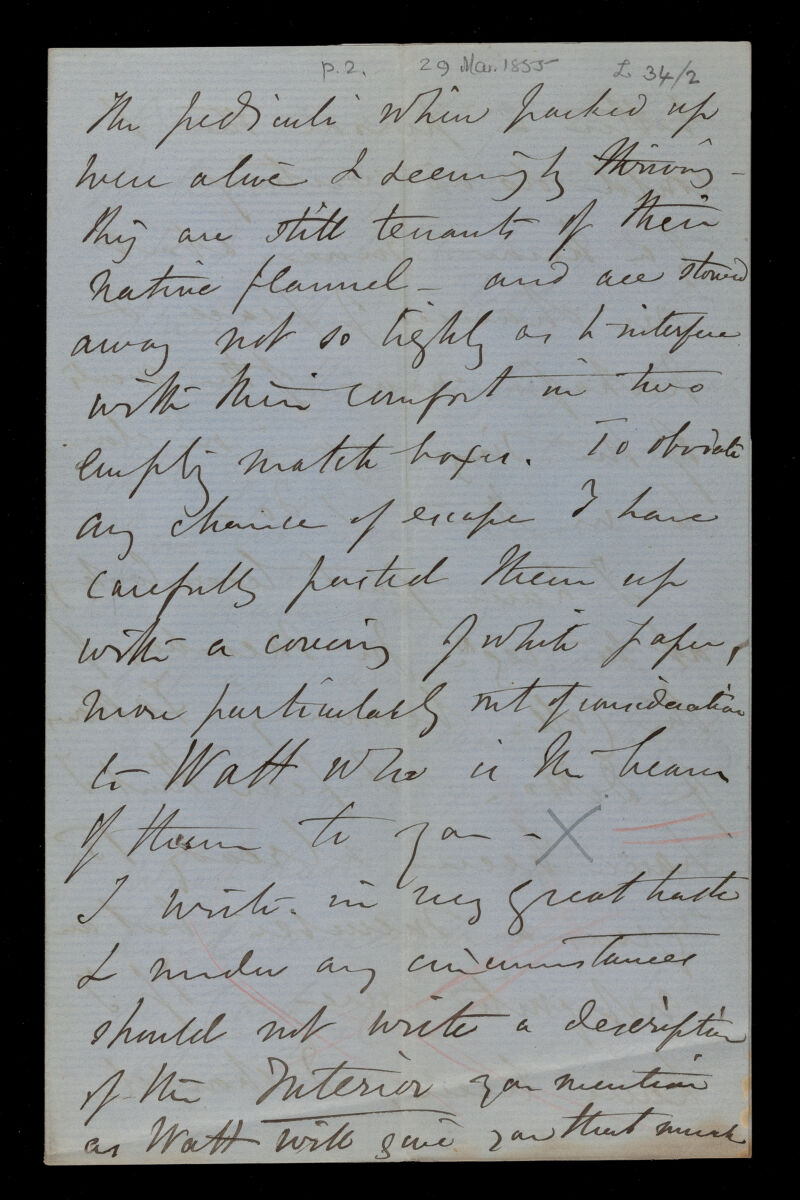 p.2. 29 Mar. 1855 L 34/2
The pediculi when packed up
were alive & seemingly thriving -
they are still tenants of their
native flannel - and are stowed
away not so tightly as to interfere
with their comfort in two
empty match boxes. To obviate
any chance of escape I have
carefully pasted them up
with a covering of white paper,
more particularly out of consideration
to Watt who is the bearer
of them to you - X
I write in very great haste
& under any circumstances
should not write a description
of the Interior you mention
as Watt will give you that much